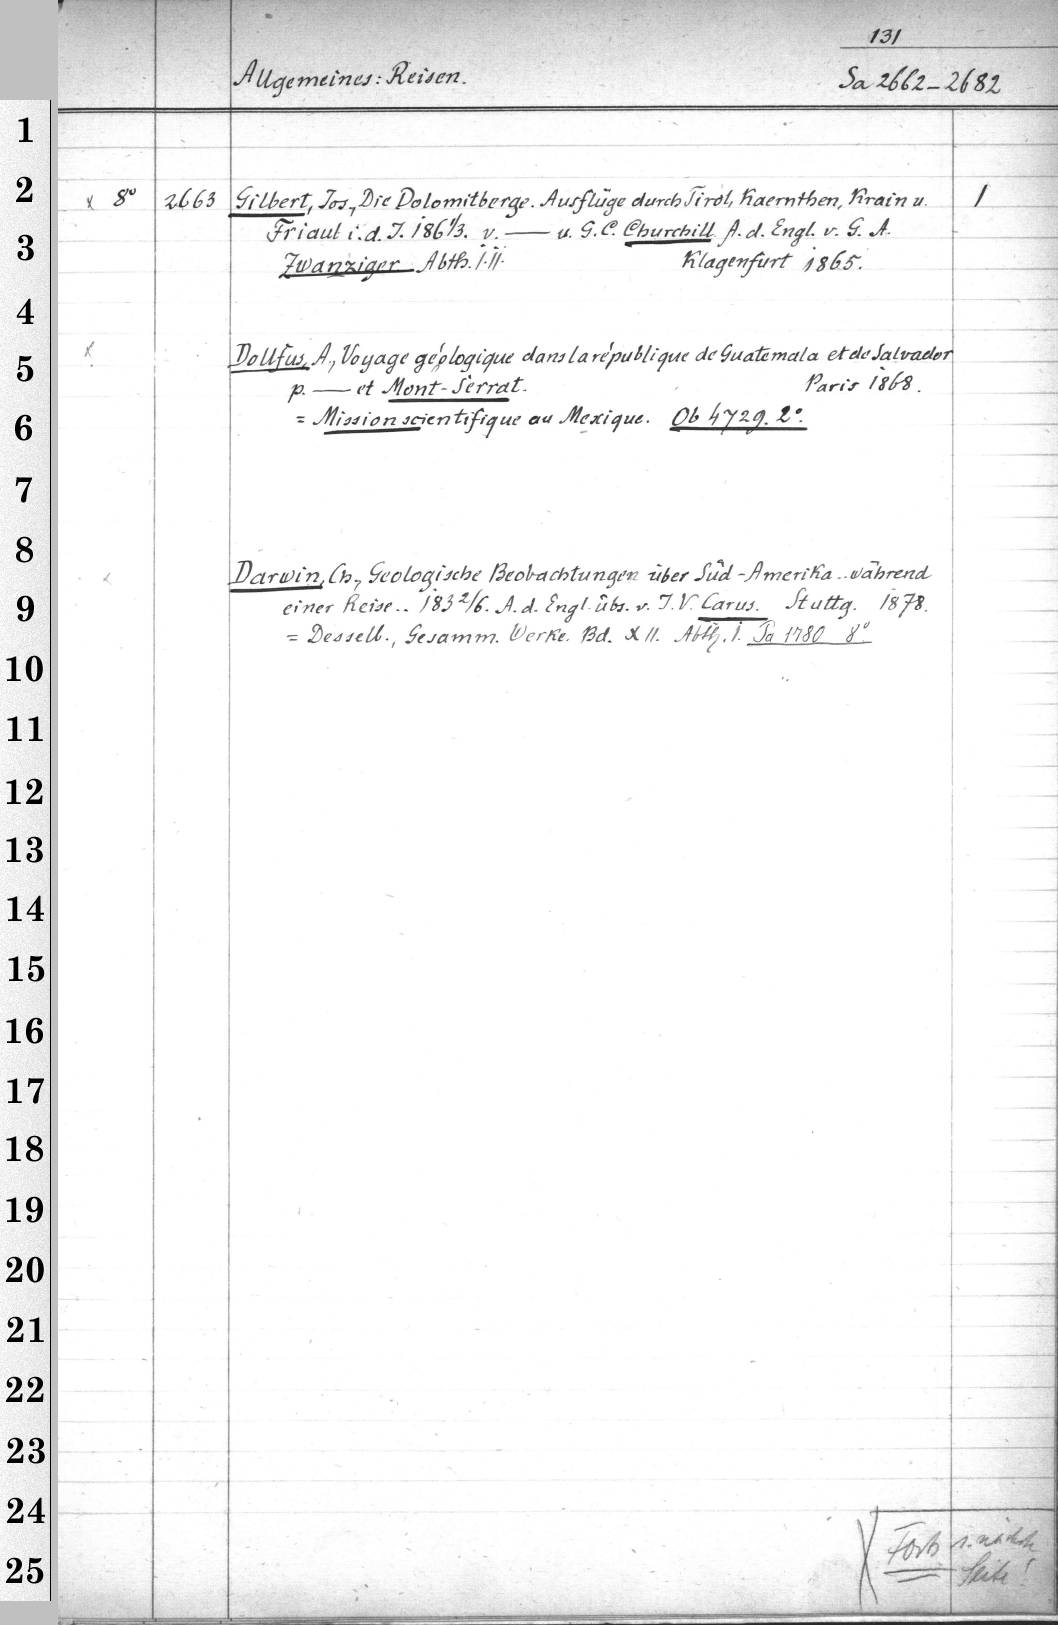 131
Allgemeines: Reisen. Sa 2662-2682
1
2
3
4
5
6
7
8
9
10
11
12
13
14
15
16
17
18
19
20
21
22
23
24
25
x 8° 2663 Gilbert, Jos., Die Dolomitberge. Ausflüge durch Tirol, Kaernthen, Krain u. 1
Friaul i. d. J. 1861/3. v. — u. G. C. Churchill A. d. Engl. v. G. A.
Zwanziger Abth. I.II. Klagenfurt 1865.
x Dollfus, A., Voyage géologique dans la république de Guatemala et de Salvador
p. — et Mont-Serrat. Paris 1868.
= Mission scientifique au Mexique. Ob 4729. 2°.
Darwin, Ch., Geologische Beobachtungen über Süd-Amerika .. während
einer Reise .. 1832/6. A. d. Engl. übs. v. J. V. Carus. Stuttg. 1878.
= Desselb., Gesamm. Werke. Bd. XII. Abth. I. 1780 8°
Forts s. nächste
Seite!